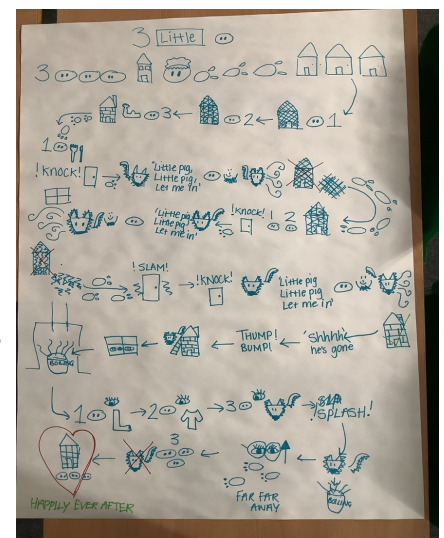 3 Little
3
3 2 1
1
! KNOCK! 'Little pig, Little pig, Let me in'
'Little pig, Little pig, Let me in' !KNOCK! 1 2
!SLAM! !KNOCK! 'Little pig Little pig Let me in'
BOILING THUMP! BUMP! 'Shhhh' he's gone
1 2 3 SPLASH!
3
BOILING
FAR FAR AWAY
HAPPILY EVER AFTER